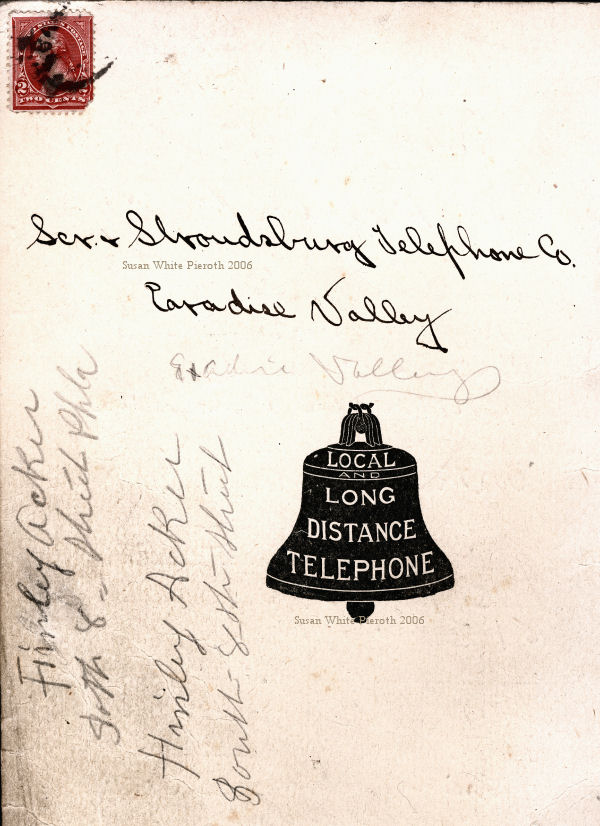 2 2
TWO CENTS
Scr. & Stroudsburg Telephone Co.
Susan White Pieroth 2006
Paradise Valley
Valley
LOCAL
AND
LONG
DISTANCE
TELEPHONE
Susan White Pieroth 2006
Finley Acker
8 Street Phla
Finley Acker
South 8th Street